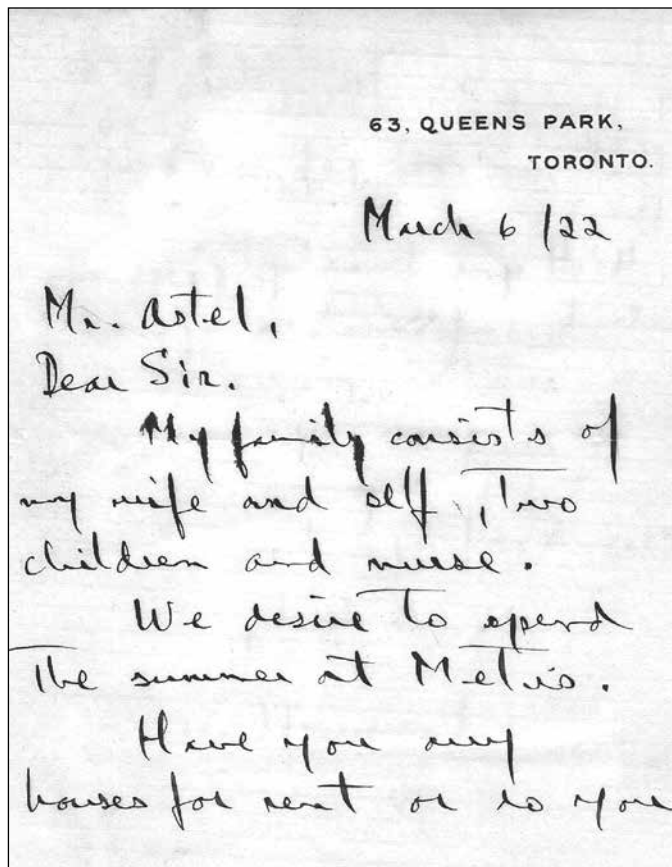 63, QUEENS PARK,
TORONTO.
March 6 /22
Mr. Astel,
Dear Sir.
My family consists of
my wife and self, two
children and nurse.
We desire to spend
the summer at Metis.
Have you any
houses for rent or do you